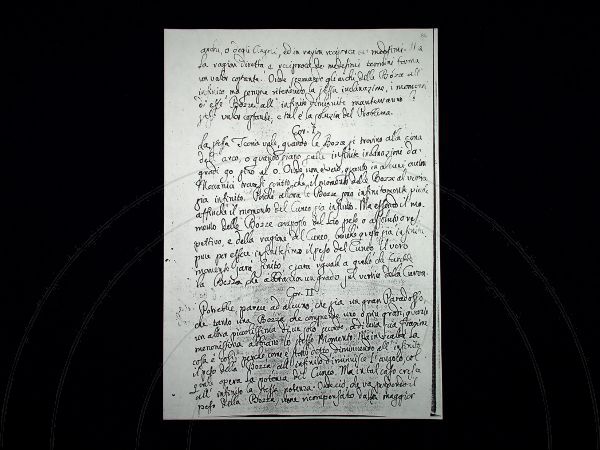 archi, o degli Angoli, ed in ragion reciproca de' medesimi. Ma
la ragion diretta e reciproca de' medesimi termini forma
un valor costante. Onde scemando gli archi delle Bozze all'
infinito, ma sempre ritenendo la stessa inclinazione, i momenti
di esse Bozze all' infinito diminuite manterranno
stesso valor costante, e tal è la soluzion del Problema.
Cor. I
La stessa Teoria vale, quando le Bozze si trovino alla cima
dell' arco, o quando siano sulle infinite inclinazioni da
gradi 90 fino al 0. Onde non è vero, quanto in alcuni autori
Meccanici trovasi scritto, che il momento delle Bozze al vertice
sia infinito. Poichè allora le Bozze sono infinitamente picciole
affinchè il momento del Cuneo sia infinito. Ma essendo il mo-
mento delle Bozze composto del lor peso o assoluto o res-
pettivo, e della ragione del Cuneo, benchè questo sia infinito
pure per essere infinitesimo il peso del Cuneo il vero
momento sarà finito, e sarà uguale a quello di quella
Bozza che abbraccia un grado sul vertice della Curva.
Cor. II
Potrebbe parere ad alcuno, che sia un gran Paradosso,
che tanto una Bozza che comprende uno o più gradi, quanto
un altra picciolissima di un solo secondo, ed una sua frazione
menomissima abbiano lo stesso Momento. Ma in verità la
cosa è così perchè come è stato detto diminuendo all' infinito
il peso della Bozza all' infinito diminuisce l' angolo, col
quale opera la potenza del Cuneo. Ma in tal caso cresce
all' infinito la stessa potenza. Onde ciò, che va perdendo il
peso della Bozza, viene ricompensato dalla maggior